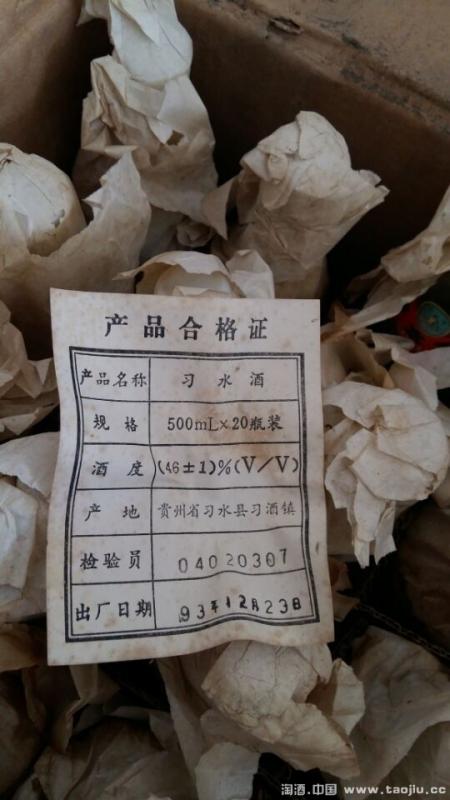 产品合格证
产品名称 习水酒
规格 500mL×20瓶装
酒度 (46±1)%(V/V)
产地 贵州省习水县习酒镇
检验员 04020307
出厂日期 93年12月23日
淘酒.中国 www.taojiu.cc